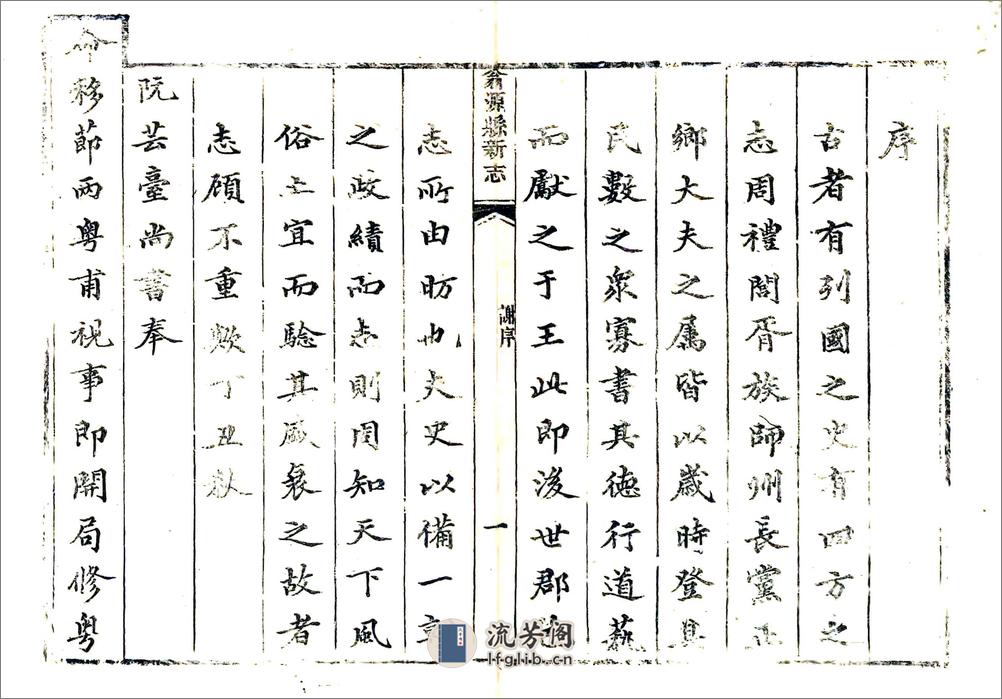 序
古者有列國之史有四方之
志周禮閭胥族師州長黨正
鄉大夫之屬皆以歲時登其
民數之眾寡書其德行道藝
而獻之于王此即後世郡
志所由昉也夫史以備一
之政績而志則周知天下風
俗土宜而驗其盛衰之故者
志顧不重歟丁丑秋
阮芸臺尚書奉
命移節兩粵甫視事即開局修粵
翁源縣新志
謝序
一
流芳閣
lfglib.cn